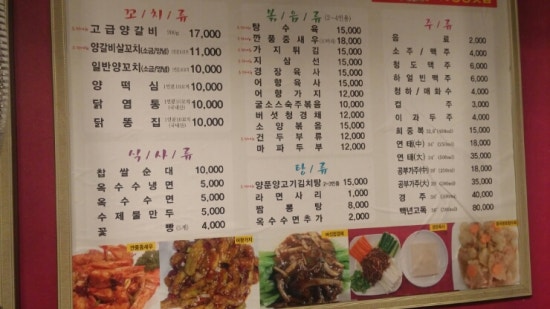 꼬/치/류
고급양갈비 17,000
양갈비살꼬치(소금/양념) 11,000
일반양꼬치(소금/양념) 10,000
양떡심 10,000
닭염통 10,000
닭똥집 10,000
식/사/류
찹쌀순대 10,000
옥수수냉면 5,000
옥수수면 5,000
수제물만두 5,000
꽃빵 (5개) 4,000
볶/음/류
탕수육 15,000
깐풍중새우 18,000
가지튀김 15,000
지삼선 15,000
경장육사 15,000
어향육사 15,000
어향가지 15,000
굴소스숙주볶음 10,000
버섯청경채 10,000
소양볶음 15,000
건두부류 12,000
마파두부 12,000
탕/류
양푼양고기김치탕 15,000
라면사리 1,000
짬뽕탕 12,000
옥수수면추가 2,000
주/류
음료 2,000
소주/맥주 4,000
칭도맥주 6,000
하얼빈맥주 6,000
청하/매화수 5,000
컵주 5,000
이과두주 5,000
회중복 15,000
연태(中) 18,000
연태(大) 35,000
공부가주(中) 18,000
공부가주(大) 35,000
경주 40,000
백년고독 80,000
깐풍중새우
어향가지
경장육사